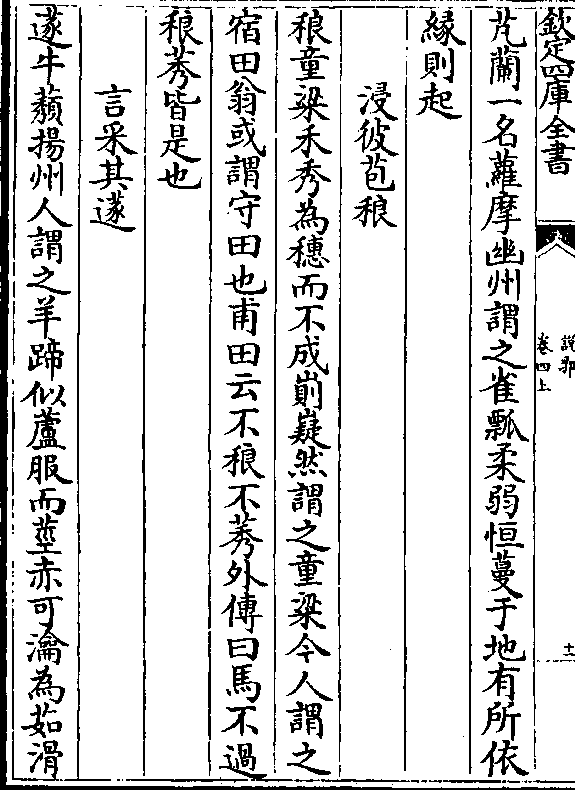 欽定四庫全書
說郛
卷四上
十一
芄蘭一名蘿摩幽州謂之雀瓢柔弱恒蔓于地有所依
緣則起
浸彼苞稂
稂童粱禾秀為穗而不成崱嶷然謂之童粱今人謂之
宿田翁或謂守田也甫田云不稂不莠外傳曰馬不過
稂莠皆是也
言采其蓫
蓫牛蘈揚州人謂之羊蹄似蘆服而莖赤可瀹為茹滑